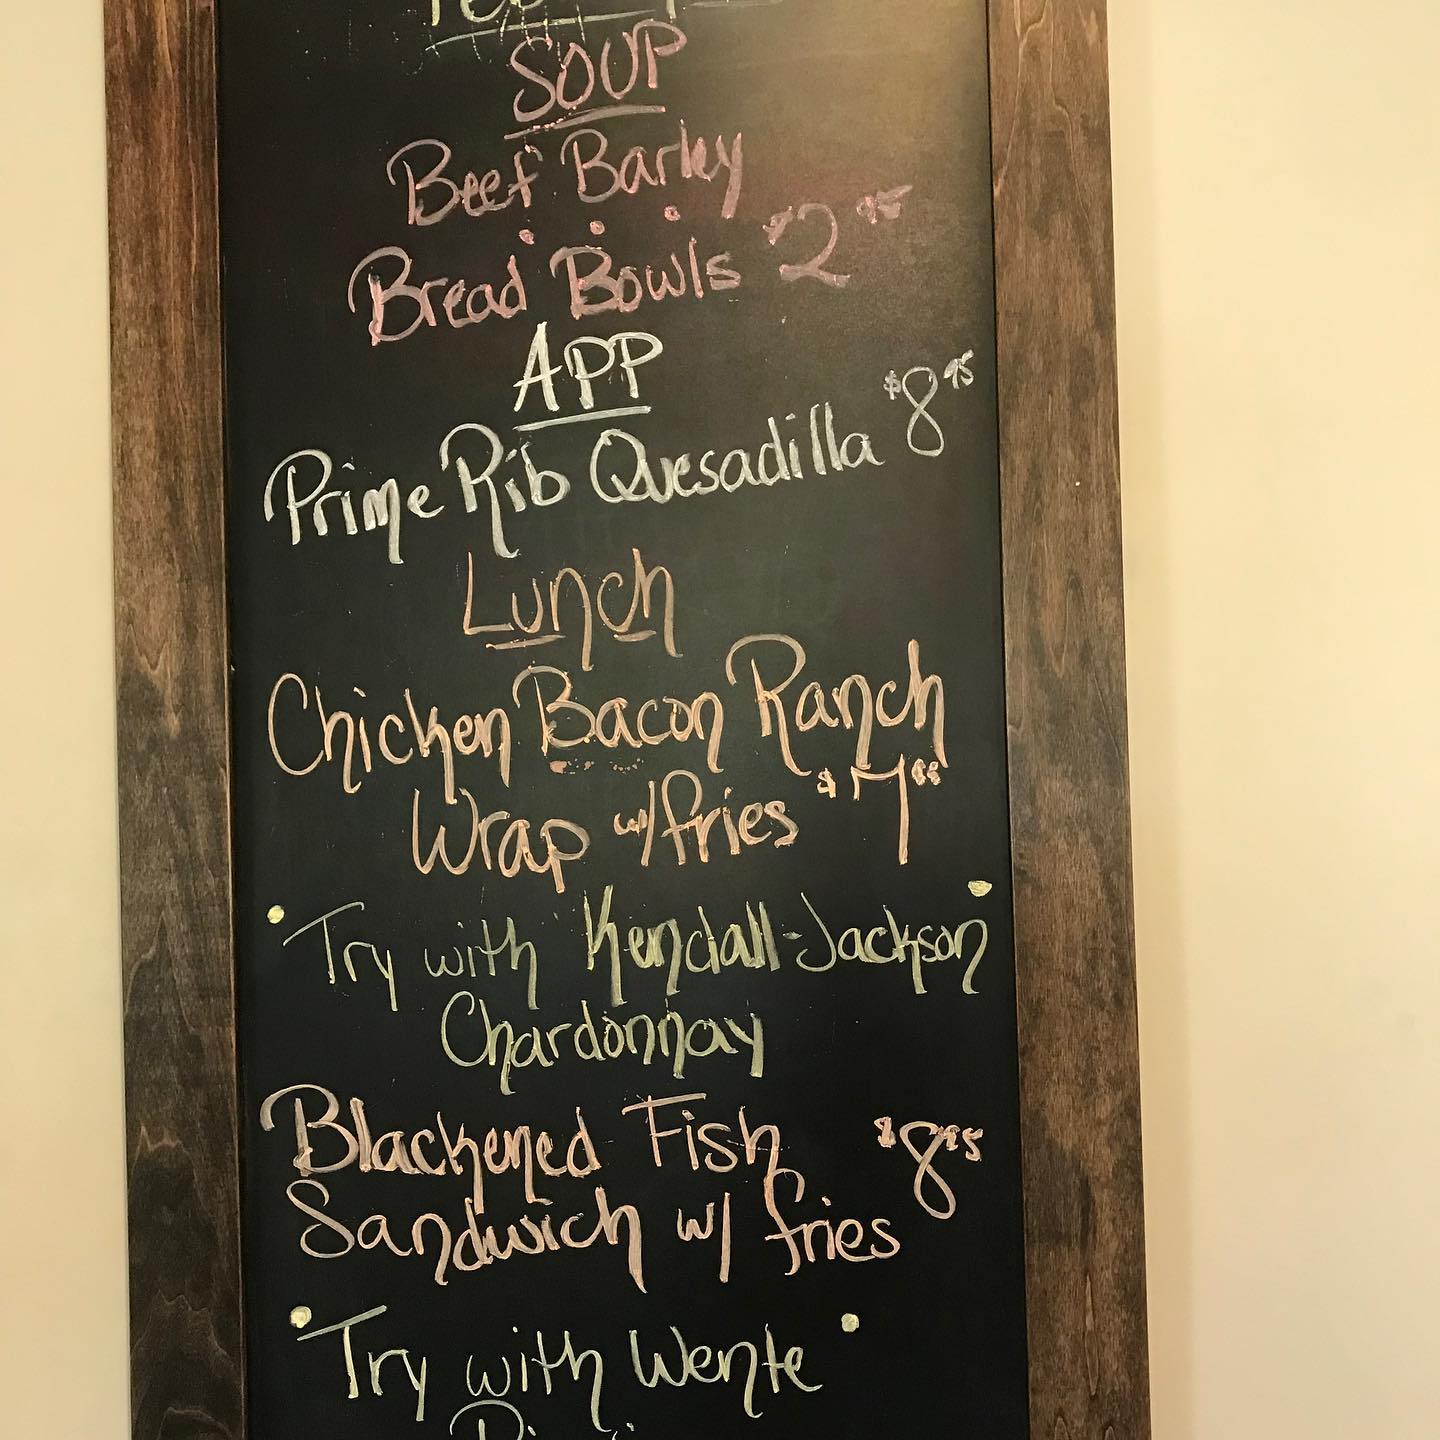 SOUP
Beef Barley
Bread Bowls $2.95
APP
Prime Rib Quesadilla $8.95
Lunch
Chicken Bacon Ranch
Wrap w/fries $7
"Try with Kendall-Jackson"
Chardonnay
Blackened Fish $8.95
Sandwich w/ fries
"Try with Wente"